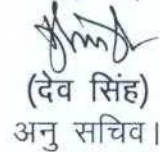 (देव सिंह)
अनु सचिव।